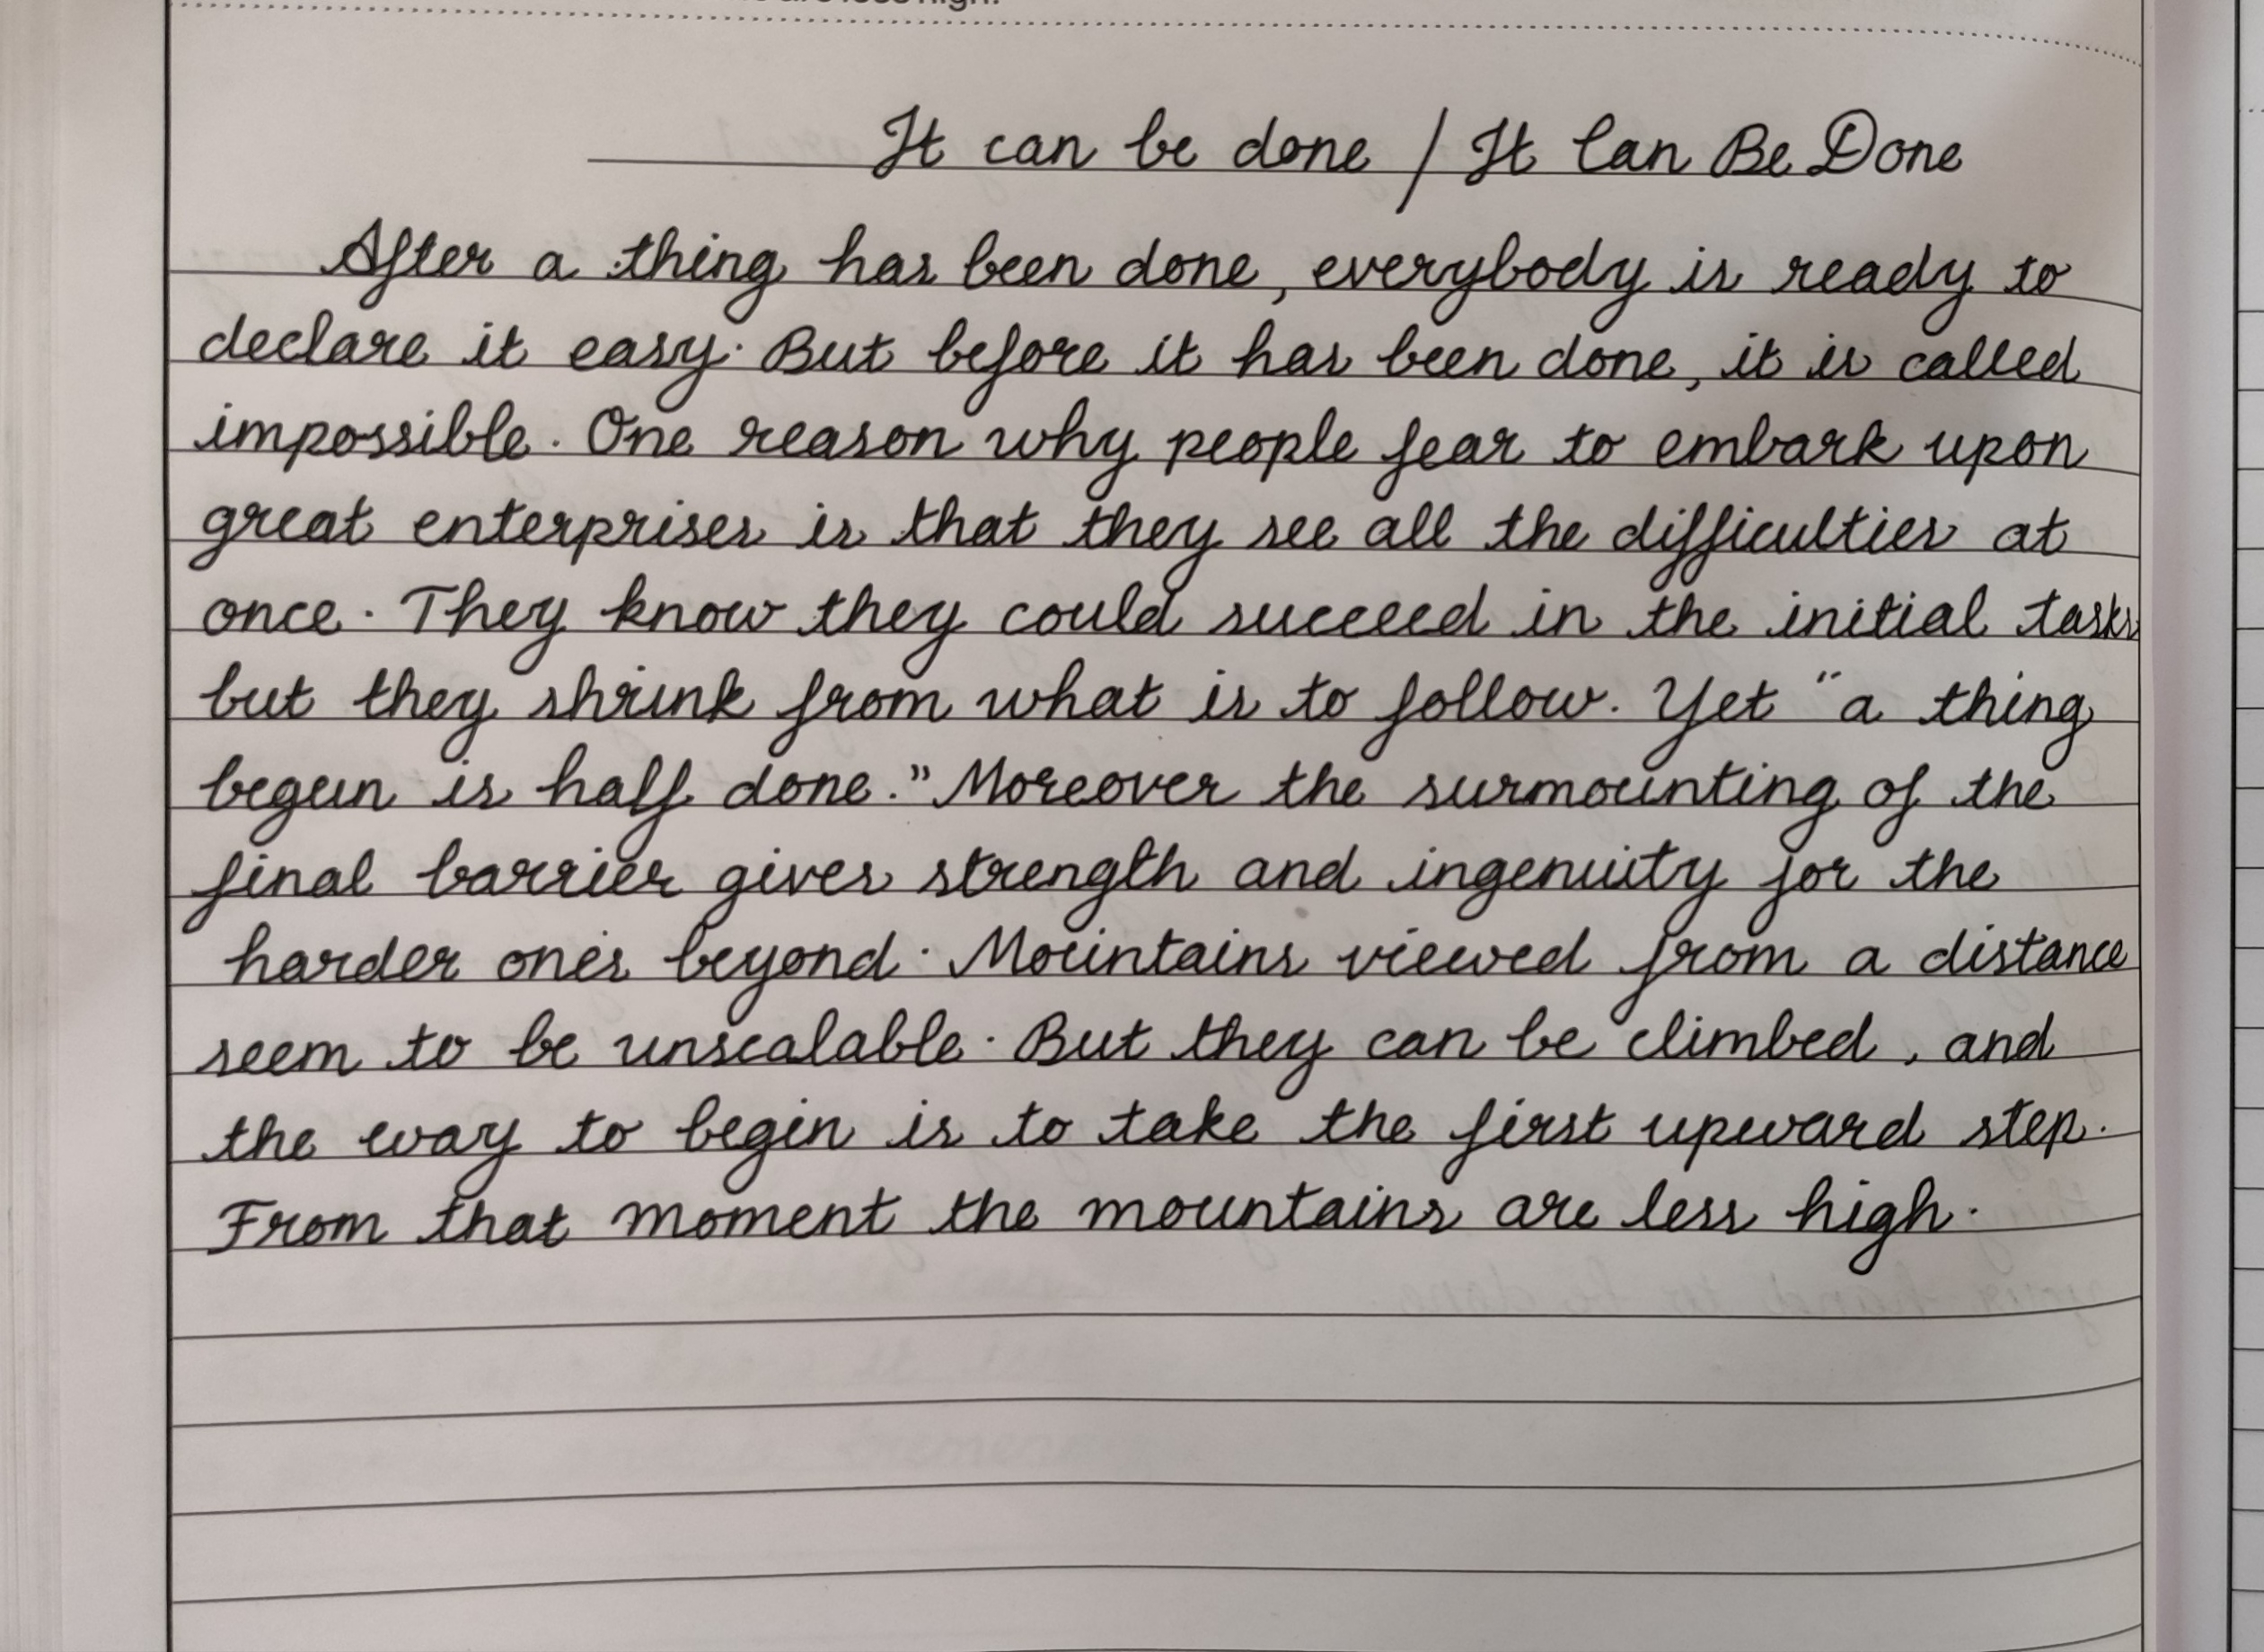 are less high.
It can be done / It Can Be Done
After a thing has been done, everybody is ready to
declare it easy. But before it has been done, it is called
impossible. One reason why people fear to embark upon
great enterprises is that they see all the difficulties at
once. They know they could succeed in the initial tasks
but they shrink from what is to follow. Yet "a thing
begun is half done." Moreover the surmounting of the
final barrier gives strength and ingenuity for the
harder ones beyond. Mountains viewed from a distance
seem to be unscalable. But they can be climbed, and
the way to begin is to take the first upward step.
From that moment the mountains are less high.